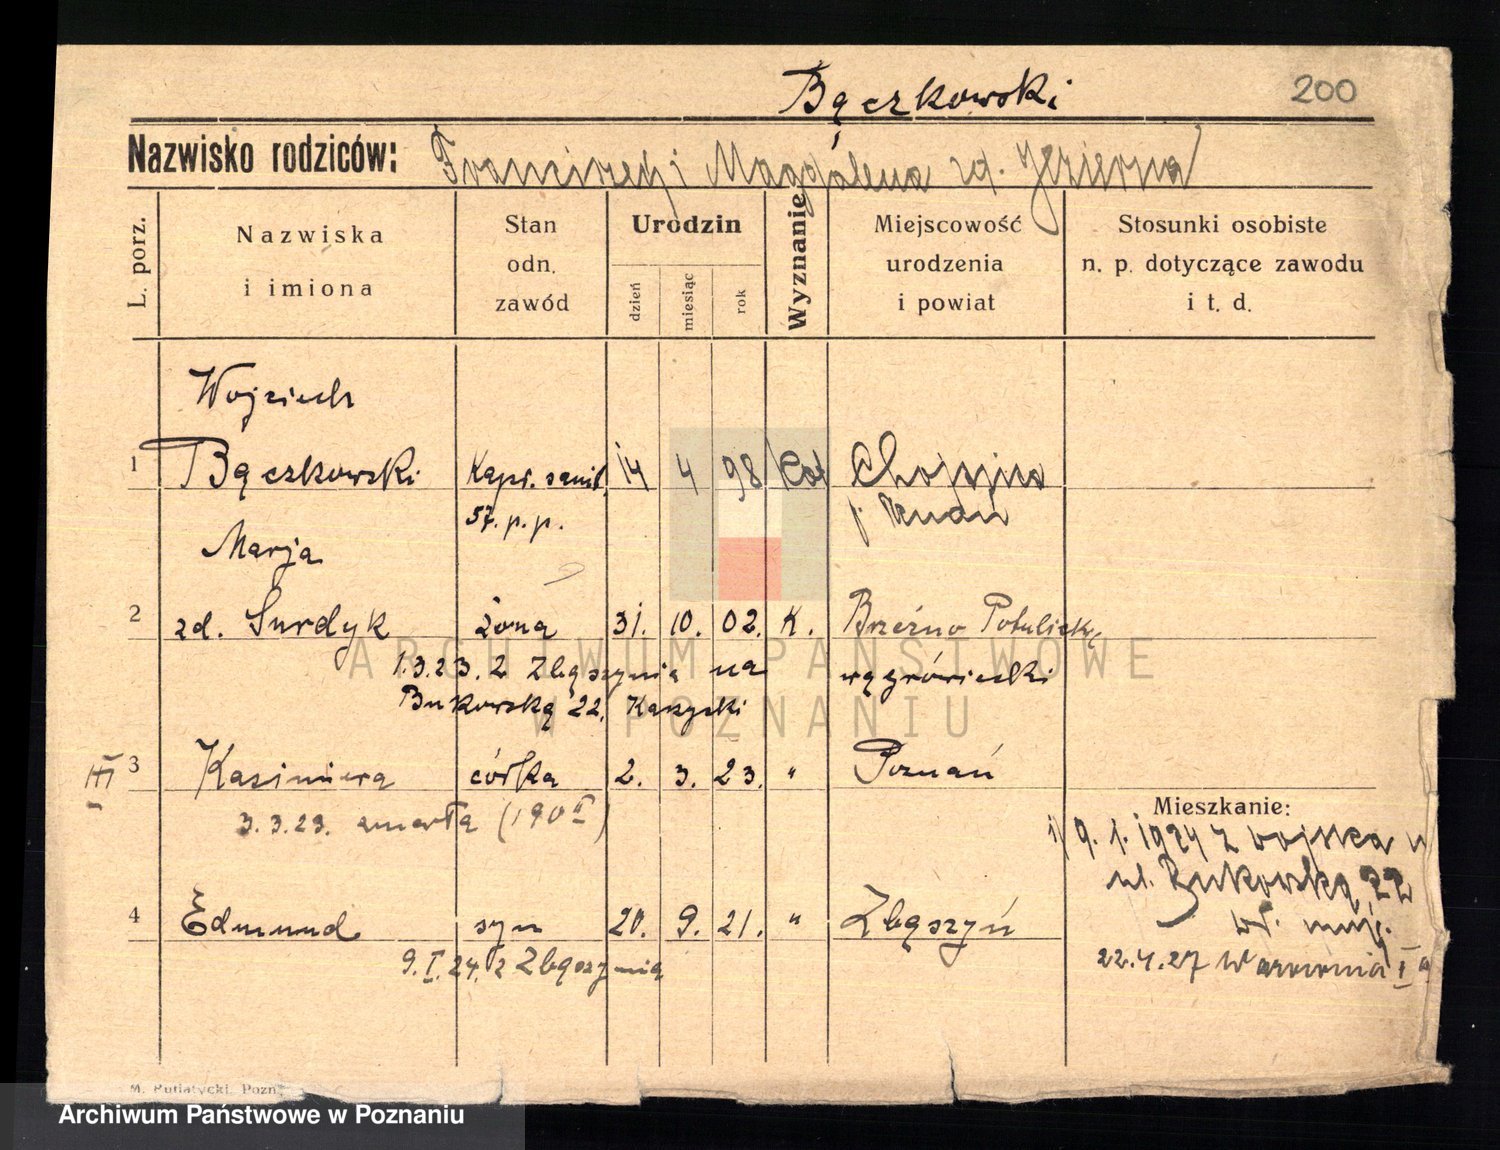 Bączkowski 200
Nazwisko rodziców: Franciszek i Magdalena zd. Jezierna
L. porz. Nazwiska i imiona Stan odn. zawód Urodzin dzień miesiąc rok Wyznanie Miejscowość urodzenia i powiat Stosunki osobiste n. p. dotyczące zawodu i t. d.
Wojciech
1 Bączkowski Kapr. sanit. 14 4 98 Kat Chojnica
57. p. p. p.
Marja
2 zd. Surdyk żona 31. 10. 02. K. Brzeźno Potulick.
1.3.23. z Zbąszynia na wągrówiecki
Bukowską 22, Kaszyski
III 3 Kazimiera córka 2. 3. 23. " Poznań
3.3.23. zmarła (190 II)
Mieszkanie:
1) 9. 1. 1924 z wojska
ul. Bukowska 22
4 Edmund syn 20. 9. 21. " Zbąszyń
9.I.24. z Zbąszynia
22.4.27 Warownia I a
M. Putiatycki, Pozn
ARCHIWUM PAŃSTWOWE
W POZNANIU
Archiwum Państwowe w Poznaniu